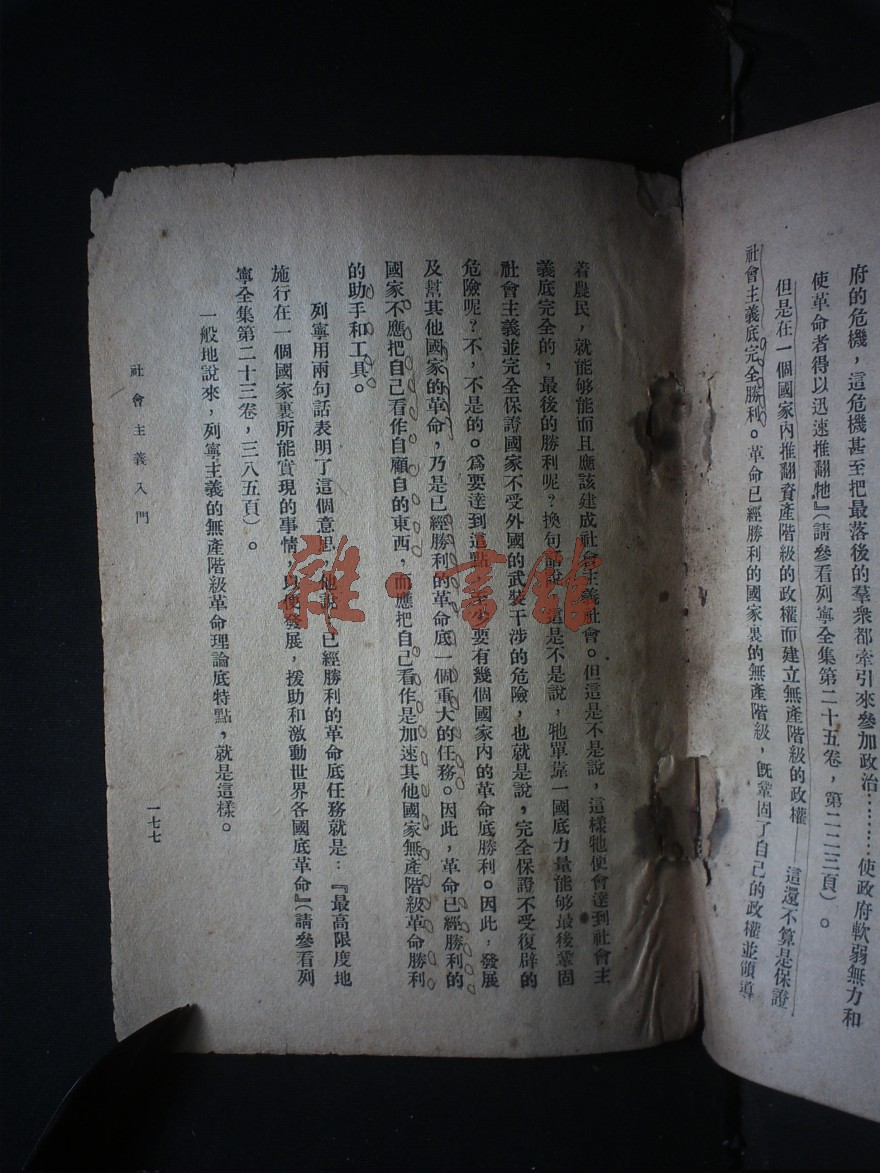 府的危機，這危機甚至把最落後的羣衆都牽引來參加政治………使政府軟弱無力和
使革命者得以迅速推翻牠』（請參看列寧全集第二十五卷，第二二三頁）。
但是在一個國家內推翻資產階級的政權而建立無產階級的政權——這還不算是保證
社會主義底完全勝利。革命已經勝利的國家裏的無產階級，旣鞏固了自己的政權並領導
着農民，就能够能而且應該建成社會主義社會。但這是不是說，這樣牠便會達到社會主
義底完全的，最後的勝利呢？換句話說，這是不是說，牠單靠一國底力量能够最後鞏固
社會主義並完全保證國家不受外國的武裝干涉的危險，也就是說，完全保證不受復辟的
危險呢？不，不是的。爲要達到這點，至少要有幾個國家內的革命底勝利。因此，發展
及幫其他國家的革命，乃是已經勝利的革命底一個重大的任務。因此，革命已經勝利的
國家不應把自己看作自顧自的東西，而應把自己看作是加速其他國家無產階級革命勝利
的助手和工具。
列寧用兩句話表明了這個意思，他說，已經勝利的革命底任務就是：『最高限度地
施行在一個國家裏所能實現的事情，以便發展，援助和激動世界各國底革命』（請參看列
寧全集第二十三卷，三八五頁）。
一般地說來，列寧主義的無產階級革命理論底特點，就是這樣。
社會主義入門
一七七
雜·書館